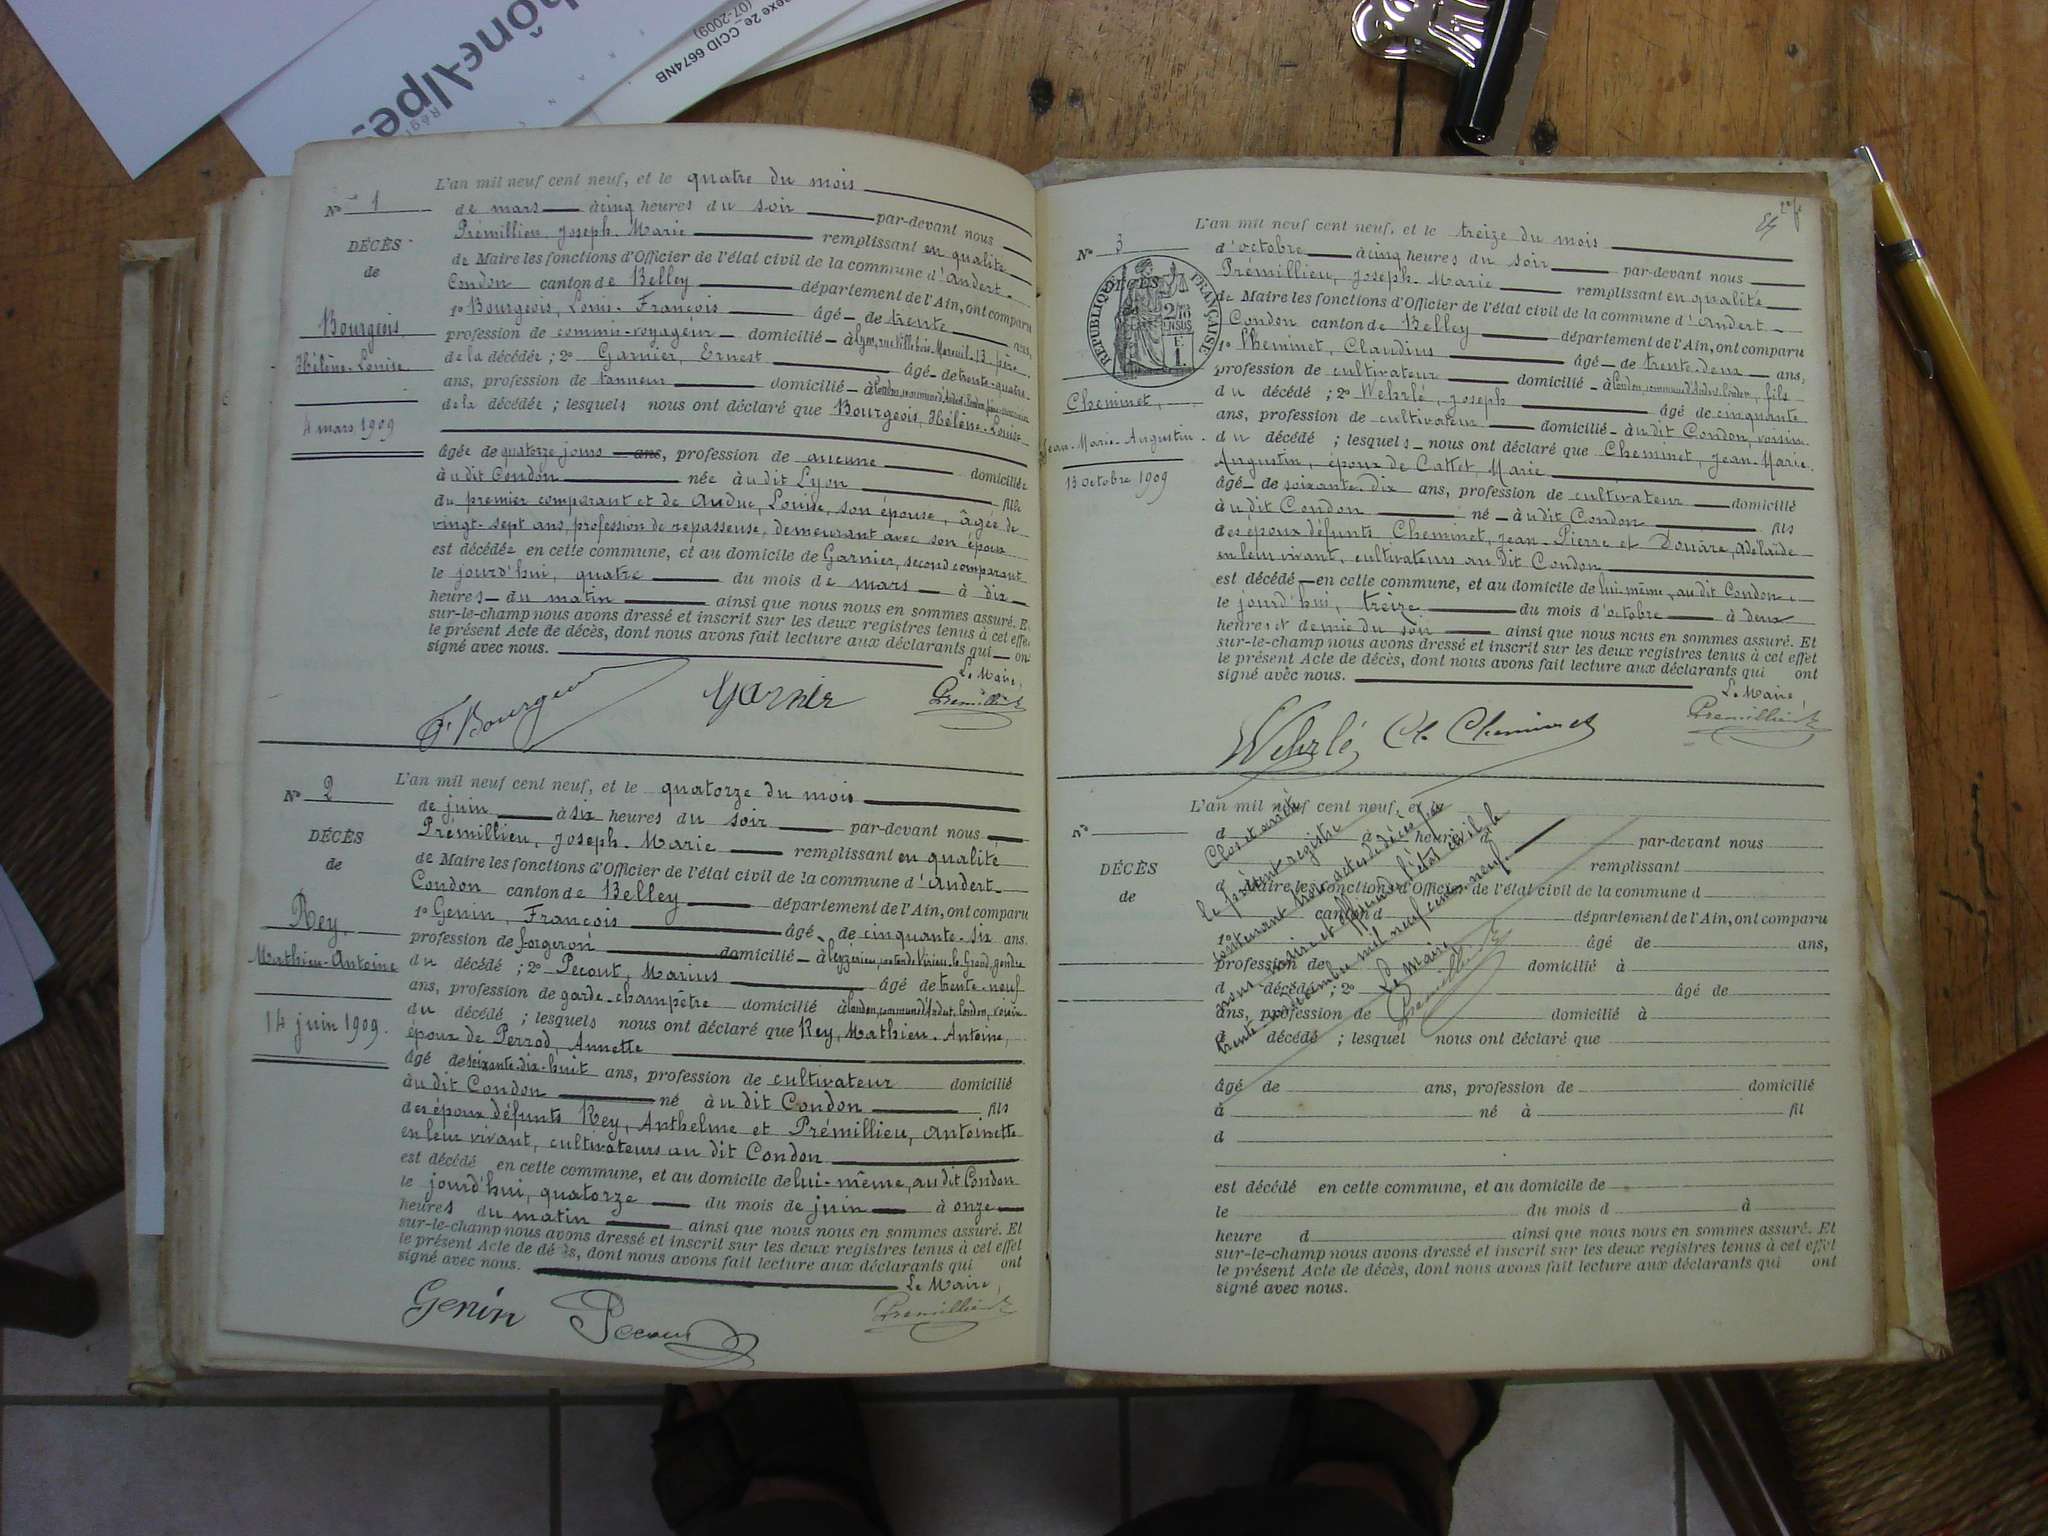 hône-Alpes
exe 2e_CCID 6674NB
(07-2009)
L'an mil neuf cent neuf, et le quatre du mois
N° 1
de mars à cinq heures du soir par-devant nous
Prémillieu, Joseph-Marie remplissant en qualité
DÉCÈS
de Maire les fonctions d'Officier de l'état civil de la commune d'Andert-
de
Condon canton de Belley département de l'Ain, ont comparu
1° Bourgeois, Louis-François âgé de trente ans,
Bourgeois
profession de commis-voyageur domicilié à Lyon, rue Villebois-Mareuil, 13, père
Hélène-Louise
de la décédée ; 2° Garnier, Ernest âgé de trente-quatre
ans, profession de tanneur domicilié à Condon, commune d'Andert-Condon,
4 mars 1909
de la décédée ; lesquels nous ont déclaré que Bourgeois, Hélène-Louise
âgée de quatorze jours ans, profession de aucune domiciliée
à u dit Condon née à u dit Lyon fille
du premier comparant et de Auduc, Louise, son épouse, âgée de
vingt-sept ans, profession de repasseuse, demeurant avec son époux
est décédée en cette commune, et au domicile de Garnier, second comparant
le jourd'hui, quatre du mois de mars à dix
heures du matin ainsi que nous nous en sommes assuré. Et
sur-le-champ nous avons dressé et inscrit sur les deux registres tenus à cet effet
le présent Acte de décès, dont nous avons fait lecture aux déclarants qui ont
signé avec nous.
Le Maire,
Bourgeois Garnier Premillieu
L'an mil neuf cent neuf, et le quatorze du mois
N° 2
de juin à six heures du soir par-devant nous
Prémillieu, Joseph-Marie remplissant en qualité
DÉCÈS
de Maire les fonctions d'Officier de l'état civil de la commune d'Andert-
de
Condon canton de Belley département de l'Ain, ont comparu
1° Genin, François âgé de cinquante-six ans
Rey,
profession de forgeron domicilié à Ceyzérieu, canton de Virieu-le-Grand, gendre
Mathieu-Antoine
du décédé ; 2° Pecout, Marius âgé de trente-neuf
ans, profession de garde-champêtre domicilié à Condon, commune d'Andert-Condon, voisin
14 juin 1909.
du décédé ; lesquels nous ont déclaré que Rey, Mathieu-Antoine,
époux de Perrod, Annette
âgé de soixante-dix-huit ans, profession de cultivateur domicilié
à u dit Condon né à u dit Condon fils
des époux défunts Rey, Anthelme et Prémillieu, Antoinette
en leur vivant, cultivateurs au dit Condon
est décédé en cette commune, et au domicile de lui-même, au dit Condon
le jourd'hui, quatorze du mois de juin à onze
heures du matin ainsi que nous nous en sommes assuré. Et
sur-le-champ nous avons dressé et inscrit sur les deux registres tenus à cet effet
le présent Acte de décès, dont nous avons fait lecture aux déclarants qui ont
signé avec nous.
Le Maire,
Genin Pecout Premillieu
L'an mil neuf cent neuf, et le treize du mois
N° 3
d'octobre à cinq heures du soir par-devant nous
Prémillieu, Joseph-Marie remplissant en qualité
DÉCÈS
RÉPUBLIQUE FRANÇAISE
de Maire les fonctions d'Officier de l'état civil de la commune d'Andert-
Condon canton de Belley département de l'Ain, ont comparu
1° Cheminet, Claudius âgé de trente-deux ans,
profession de cultivateur domicilié à Condon, commune d'Andert-Condon, fils
Cheminet,
du décédé ; 2° Wehrlé, Joseph âgé de cinquante
ans, profession de cultivateur domicilié à u dit Condon, voisin
Jean-Marie-Augustin
du décédé ; lesquels nous ont déclaré que Cheminet, Jean-Marie-
13 octobre 1909
Augustin, époux de Cattet, Marie
âgé de soixante-dix ans, profession de cultivateur domicilié
à u dit Condon né à u dit Condon fils
des époux défunts Cheminet, Jean-Pierre et Douare, Adélaïde
en leur vivant, cultivateurs au dit Condon
est décédé en cette commune, et au domicile de lui-même, au dit Condon,
le jourd'hui, treize du mois d'octobre à deux
heures et demie du soir ainsi que nous nous en sommes assuré. Et
sur-le-champ nous avons dressé et inscrit sur les deux registres tenus à cet effet
le présent Acte de décès, dont nous avons fait lecture aux déclarants qui ont
signé avec nous.
Le Maire
Wehrlé Cl. Cheminet Premillieu
L'an mil neuf cent neuf, et le
N°
d à heure d par-devant nous
remplissant
DÉCÈS
d Maire les fonctions d'Officier de l'état civil de la commune d
de
canton d département de l'Ain, ont comparu
1° âgé de ans,
profession de domicilié à
d décédé ; 2° âgé de
ans, profession de domicilié à
d décédé ; lesquel nous ont déclaré que
âgé de ans, profession de domicilié
à né à fil
d
est décédé en cette commune, et au domicile de
le du mois d à
heure d ainsi que nous nous en sommes assuré. Et
sur-le-champ nous avons dressé et inscrit sur les deux registres tenus à cet effet
le présent Acte de décès, dont nous avons fait lecture aux déclarants qui ont
signé avec nous.
Clos et arrêté
le présent registre
contenant trois actes de décès par
nous maire et officier de l'état civil le
trente-un décembre mil neuf cent neuf.
Le Maire
Premillieu